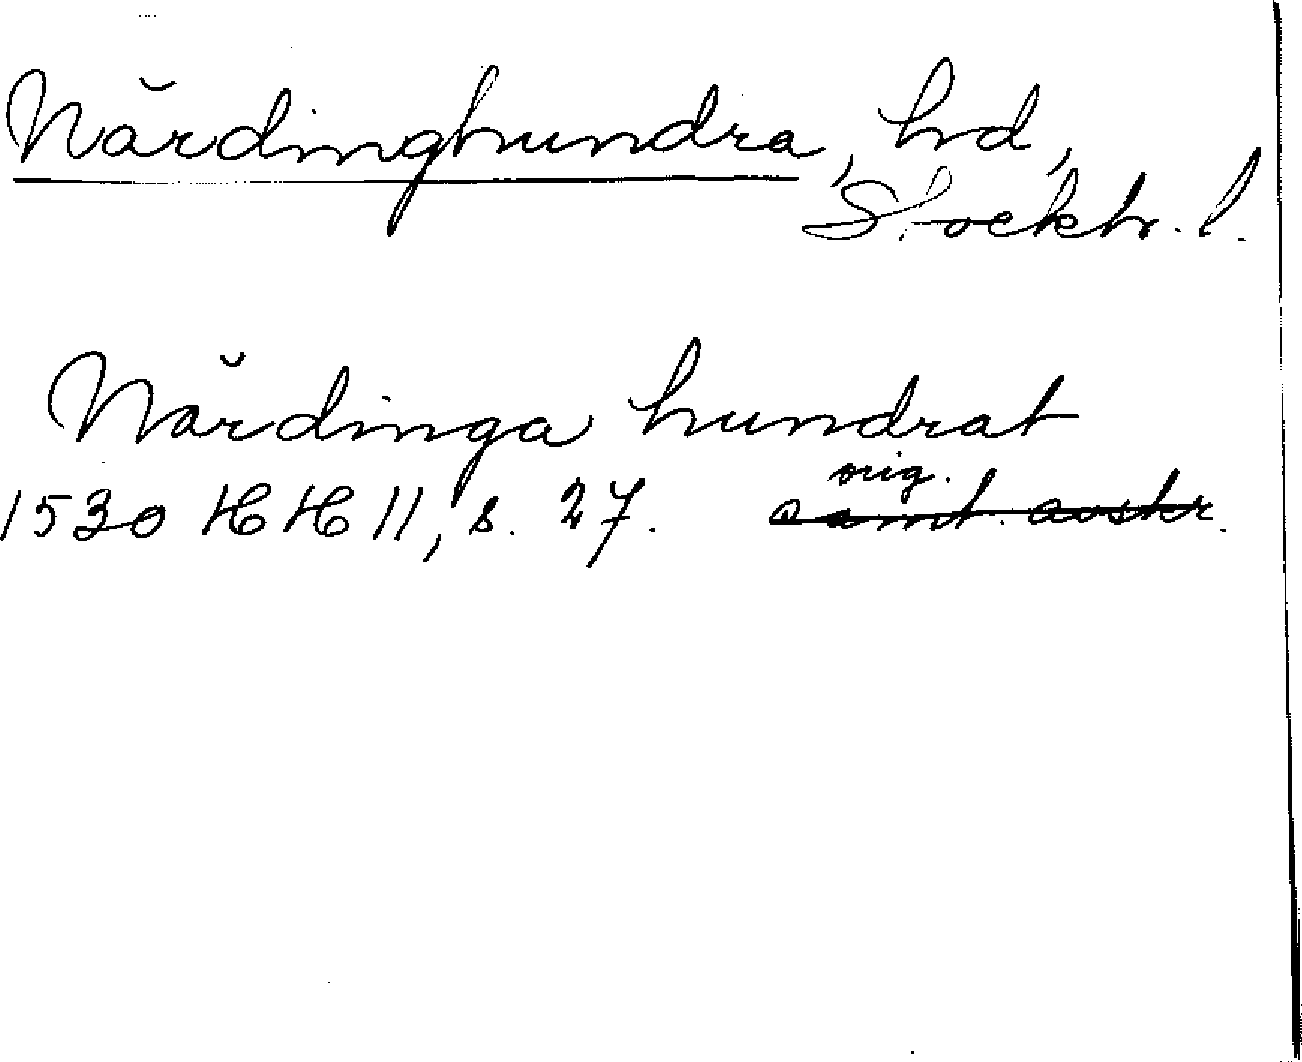 Närdinghundra, hd,
Stockh. l.
Närdinga hundrat
orig.
1530 HH 11, s. 27. samt. avskr.